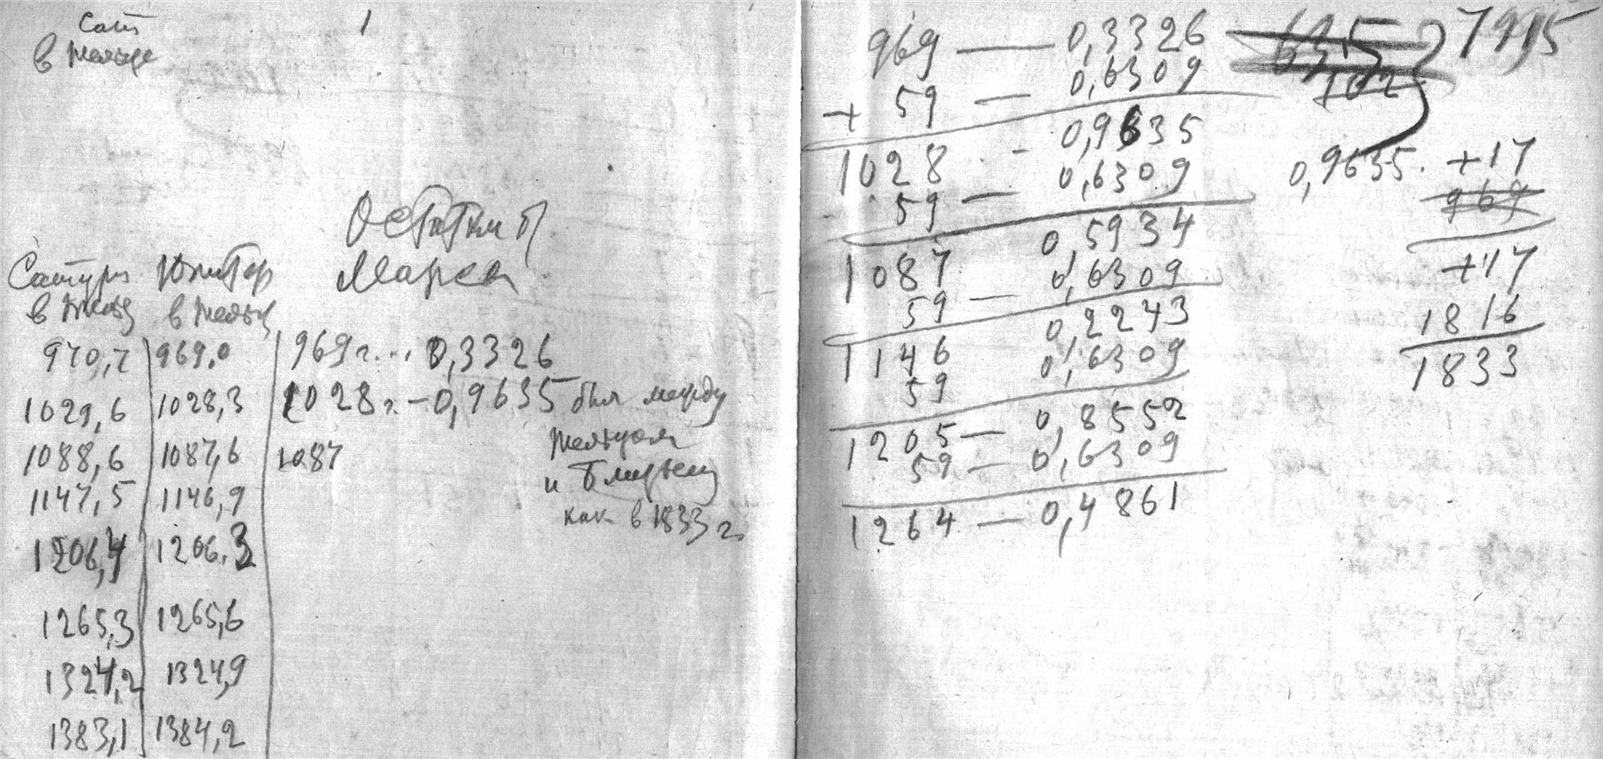 Сат
в Тельце
1
Остатки П.
Марса
Сатурн
в Тельц
Юпитер
в Тельц
970,7 969,0 969 г... 0,3326
1029,6 1028,3 1028 г. - 0,9635 был между
Тельцом
и Близнец
как в 1833 г.
1088,6 1087,6 1087
1147,5 1146,9
1206,4 1206.3
1265,3 1265,6
1324,2 1324,9
1383,1 1384,2
969 — 0,3326
+ 59 — 0,6309
1028 - 0,9635
59 — 0,6309
1087 0,5934
59 — 0,6309
1146 0,2243
59 0,6309
1205 — 0,8552
59 — 0,6309
1264 — 0,4861
635
102
0,9635. +17
969
+17
1816
1833